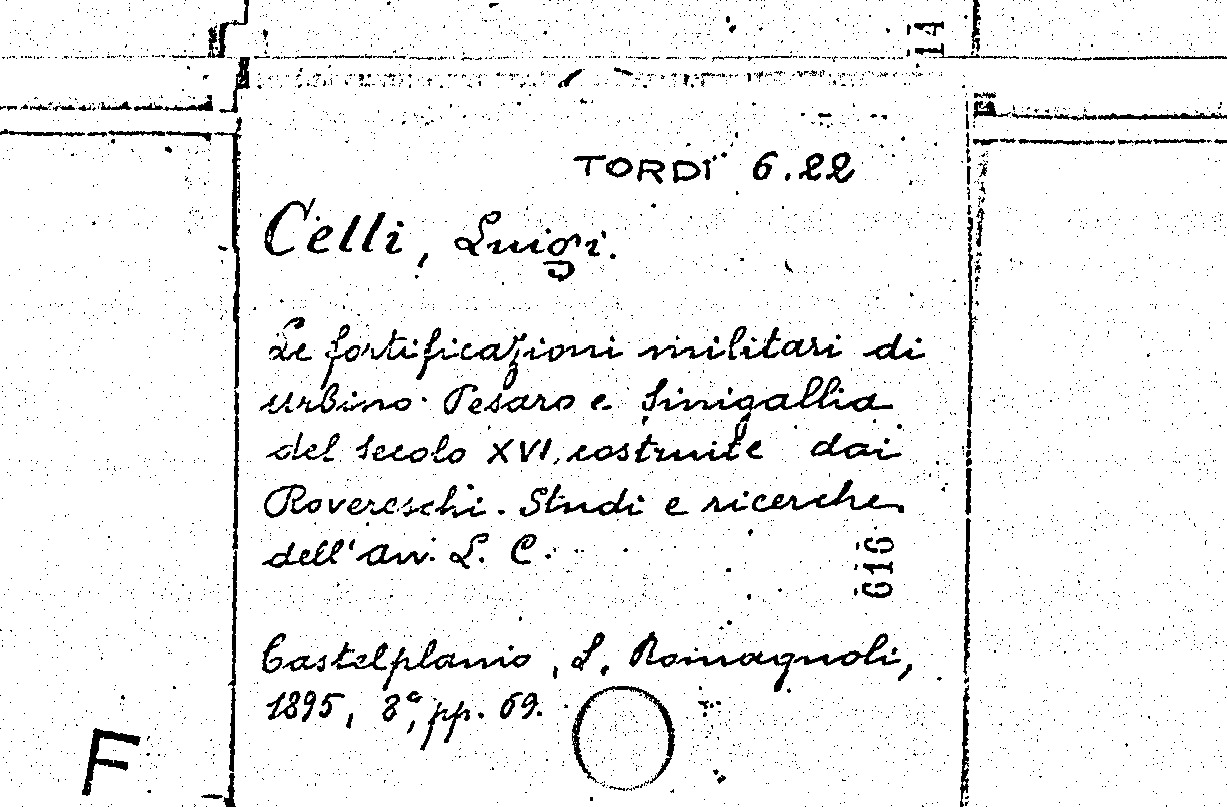 14
TORDI 6.22
Celli, Luigi.
Le fortificazioni militari di
Urbino. Pesaro e Sinigallia
del secolo XVI, costruite dai
Rovereschi. Studi e ricerche
dell'avv. L. C.
616
Castelplanio, L. Romagnoli,
1895, 8°, pp. 69.
F